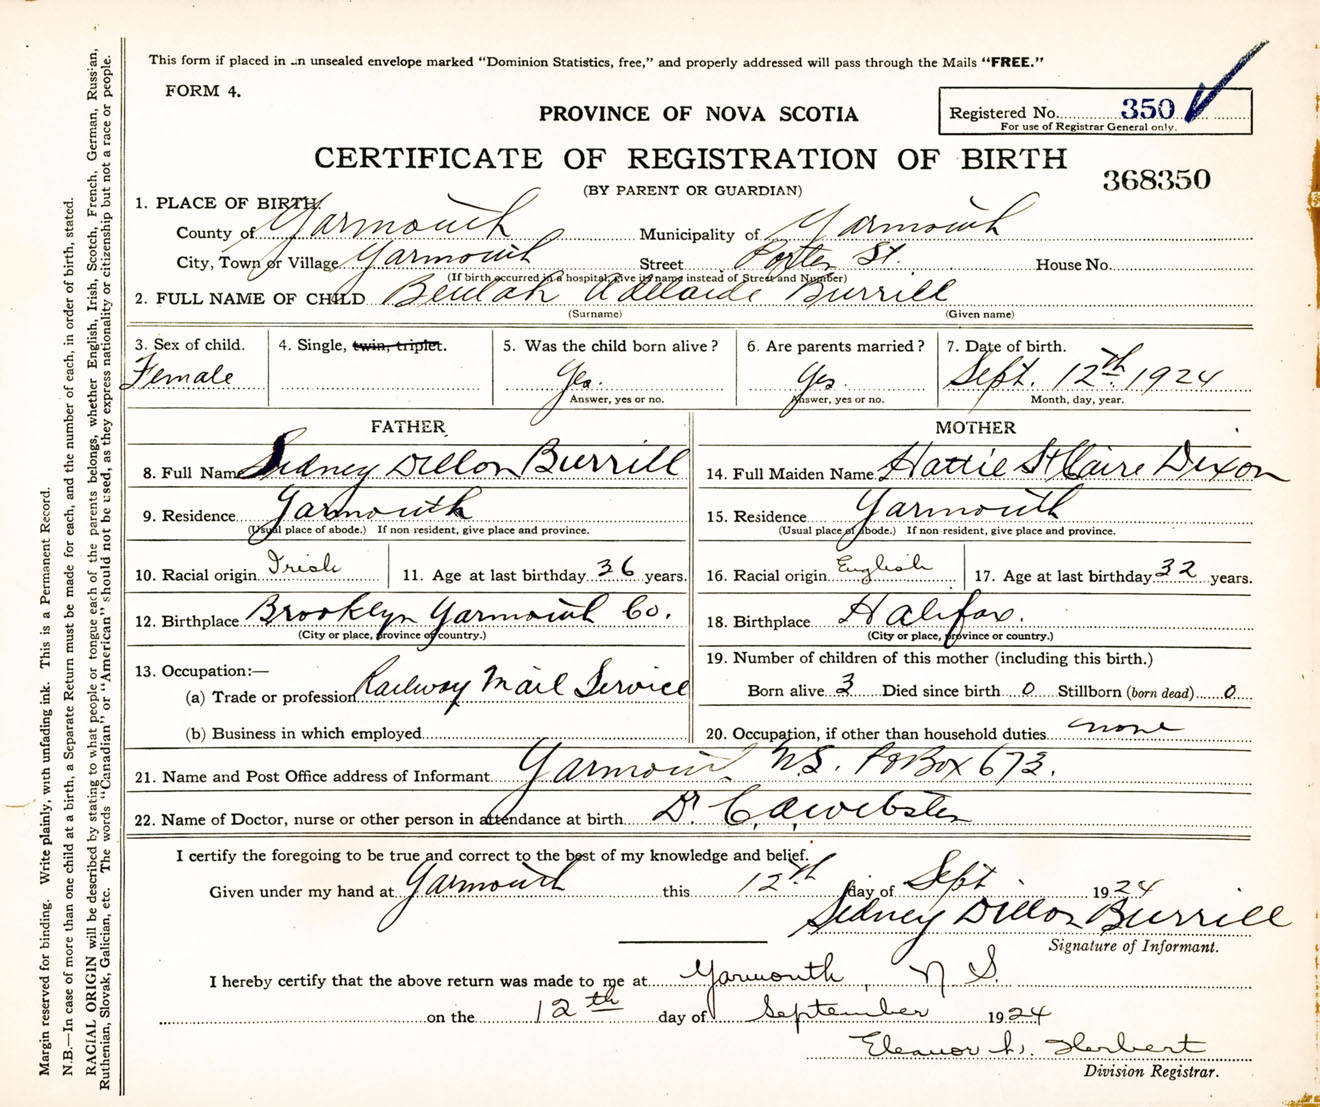 This form if placed in an unsealed envelope marked "Dominion Statistics, free," and properly addressed will pass through the Mails "FREE."
FORM 4.
PROVINCE OF NOVA SCOTIA
Registered No. 350
For use of Registrar General only.
CERTIFICATE OF REGISTRATION OF BIRTH
368350
(BY PARENT OR GUARDIAN)
1. PLACE OF BIRTH.
County of Yarmouth Municipality of Yarmouth
City, Town or Village Yarmouth Street Porter St. House No.
(If birth occurred in a hospital, give its name instead of Street and Number)
2. FULL NAME OF CHILD Beulah Adelaide Burrill
(Surname) (Given name)
3. Sex of child. 4. Single, twin, triplet. 5. Was the child born alive? 6. Are parents married? 7. Date of birth.
Female Yes. Yes. Sept. 12th. 1924
Answer, yes or no. Answer, yes or no. Month, day, year.
FATHER MOTHER
8. Full Name Sidney Dillon Burrill 14. Full Maiden Name Hattie St Claire Dixon
9. Residence Yarmouth 15. Residence Yarmouth
(Usual place of abode.) If non-resident, give place and province. (Usual place of abode.) If non-resident, give place and province.
10. Racial origin Irish 11. Age at last birthday 36 years. 16. Racial origin English 17. Age at last birthday 32 years.
12. Birthplace Brooklyn Yarmouth Co. 18. Birthplace Halifax.
(City or place, province or country.) (City or place, province or country.)
13. Occupation:— 19. Number of children of this mother (including this birth.)
(a) Trade or profession Railway Mail Service Born alive 3 Died since birth 0 Stillborn (born dead) 0
(b) Business in which employed 20. Occupation, if other than household duties none
21. Name and Post Office address of Informant Yarmouth N.S. PO Box 673.
22. Name of Doctor, nurse or other person in attendance at birth Dr. C.A. Webster
I certify the foregoing to be true and correct to the best of my knowledge and belief.
Given under my hand at Yarmouth this 12th day of Sept 1924
Sidney Dillon Burrill
Signature of Informant.
I hereby certify that the above return was made to me at Yarmouth, N S.
on the 12th day of September 1924
Eleanor L. Herbert
Division Registrar.
Margin reserved for binding. Write plainly, with unfading ink. This is a Permanent Record.
N.B.—In case of more than one child at a birth, a Separate Return must be made for each, and the number of each, in order of birth, stated.
RACIAL ORIGIN will be described by stating to what people or tongue each of the parents belongs, whether English, Irish, Scotch, French, German, Russian,
Ruthenian, Slovak, Galician, etc. The words "Canadian" or "American" should not be used, as they express nationality or citizenship but not a race or people.